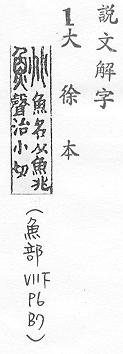 說文解字
1大徐本
鮡 魚名从魚兆
聲治小切
(魚部 VII下 P6 B7)